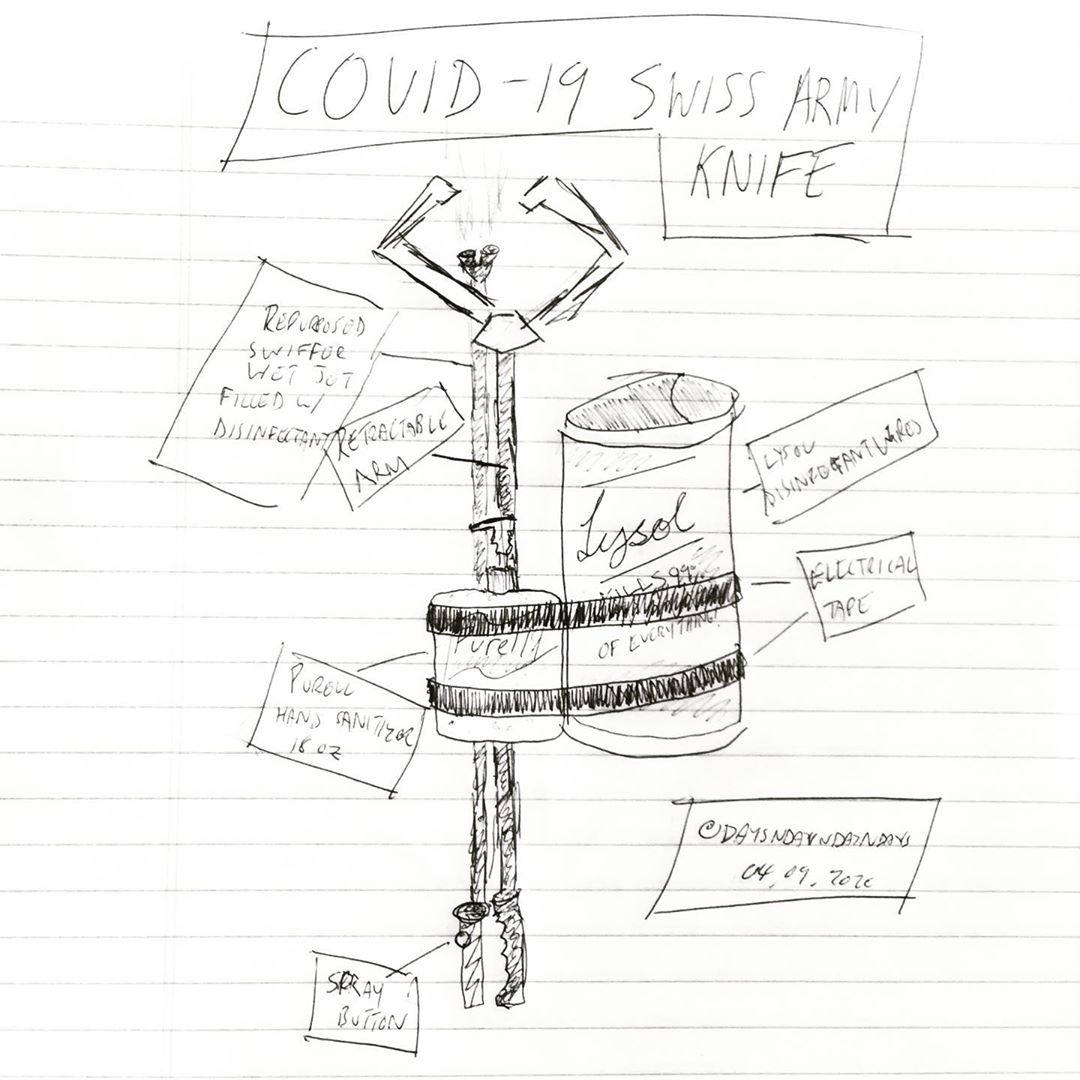 COVID-19 SWISS ARMY
KNIFE
REPURPOSED
SWIFFER
WET JET
FILLED W/
DISINFECTANT
RETRACTABLE
ARM
LYSOL
DISINFECTANT WIPES
Lysol
KILLS 99%
OF EVERYTHING!
ELECTRICAL
TAPE
Purell
PURELL
HAND SANITIZER
18 OZ
@DAYSNDAYNDAZNDAYS
04.09.2020
SPRAY
BUTTON